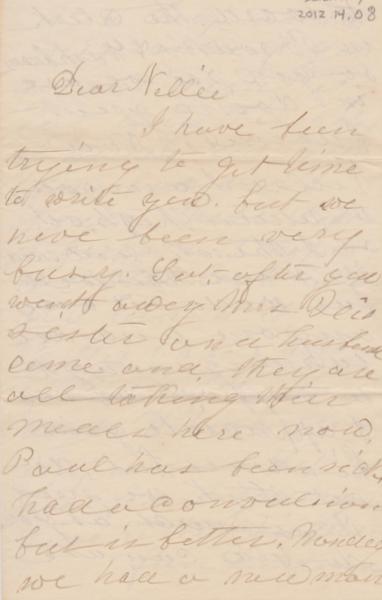 2012 14.08
Dear Nellie
I have been
trying to get time
to write you. but we
have been very
busy. Sat. after you
went away Mrs
sister and husband
came and they are
all taking their
meals here now.
Paul has been sick
had a convulsion
but is better. Monday
we had a new man